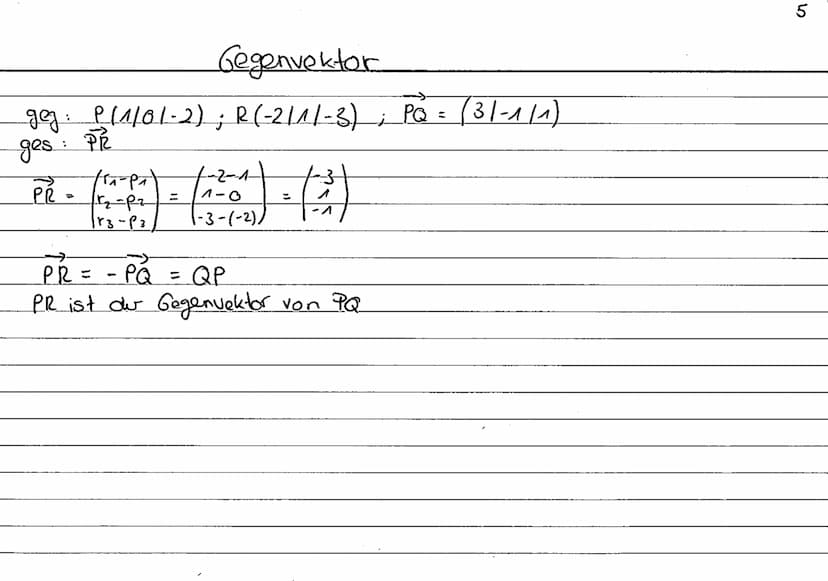 5
Gegenvektor
geg: P(1/0/-2) ; R(-2/1/-3) ; PQ⃗ = (3/-1/1)
ges: PR⃗
PR⃗ = (r₁-p₁ r₂-p₂ r₃-p₃) = (-2-1 1-0 -3-(-2)) = (-3 1 -1)
PR⃗ = -PQ⃗ = QP
PR ist der Gegenvektor von PQ